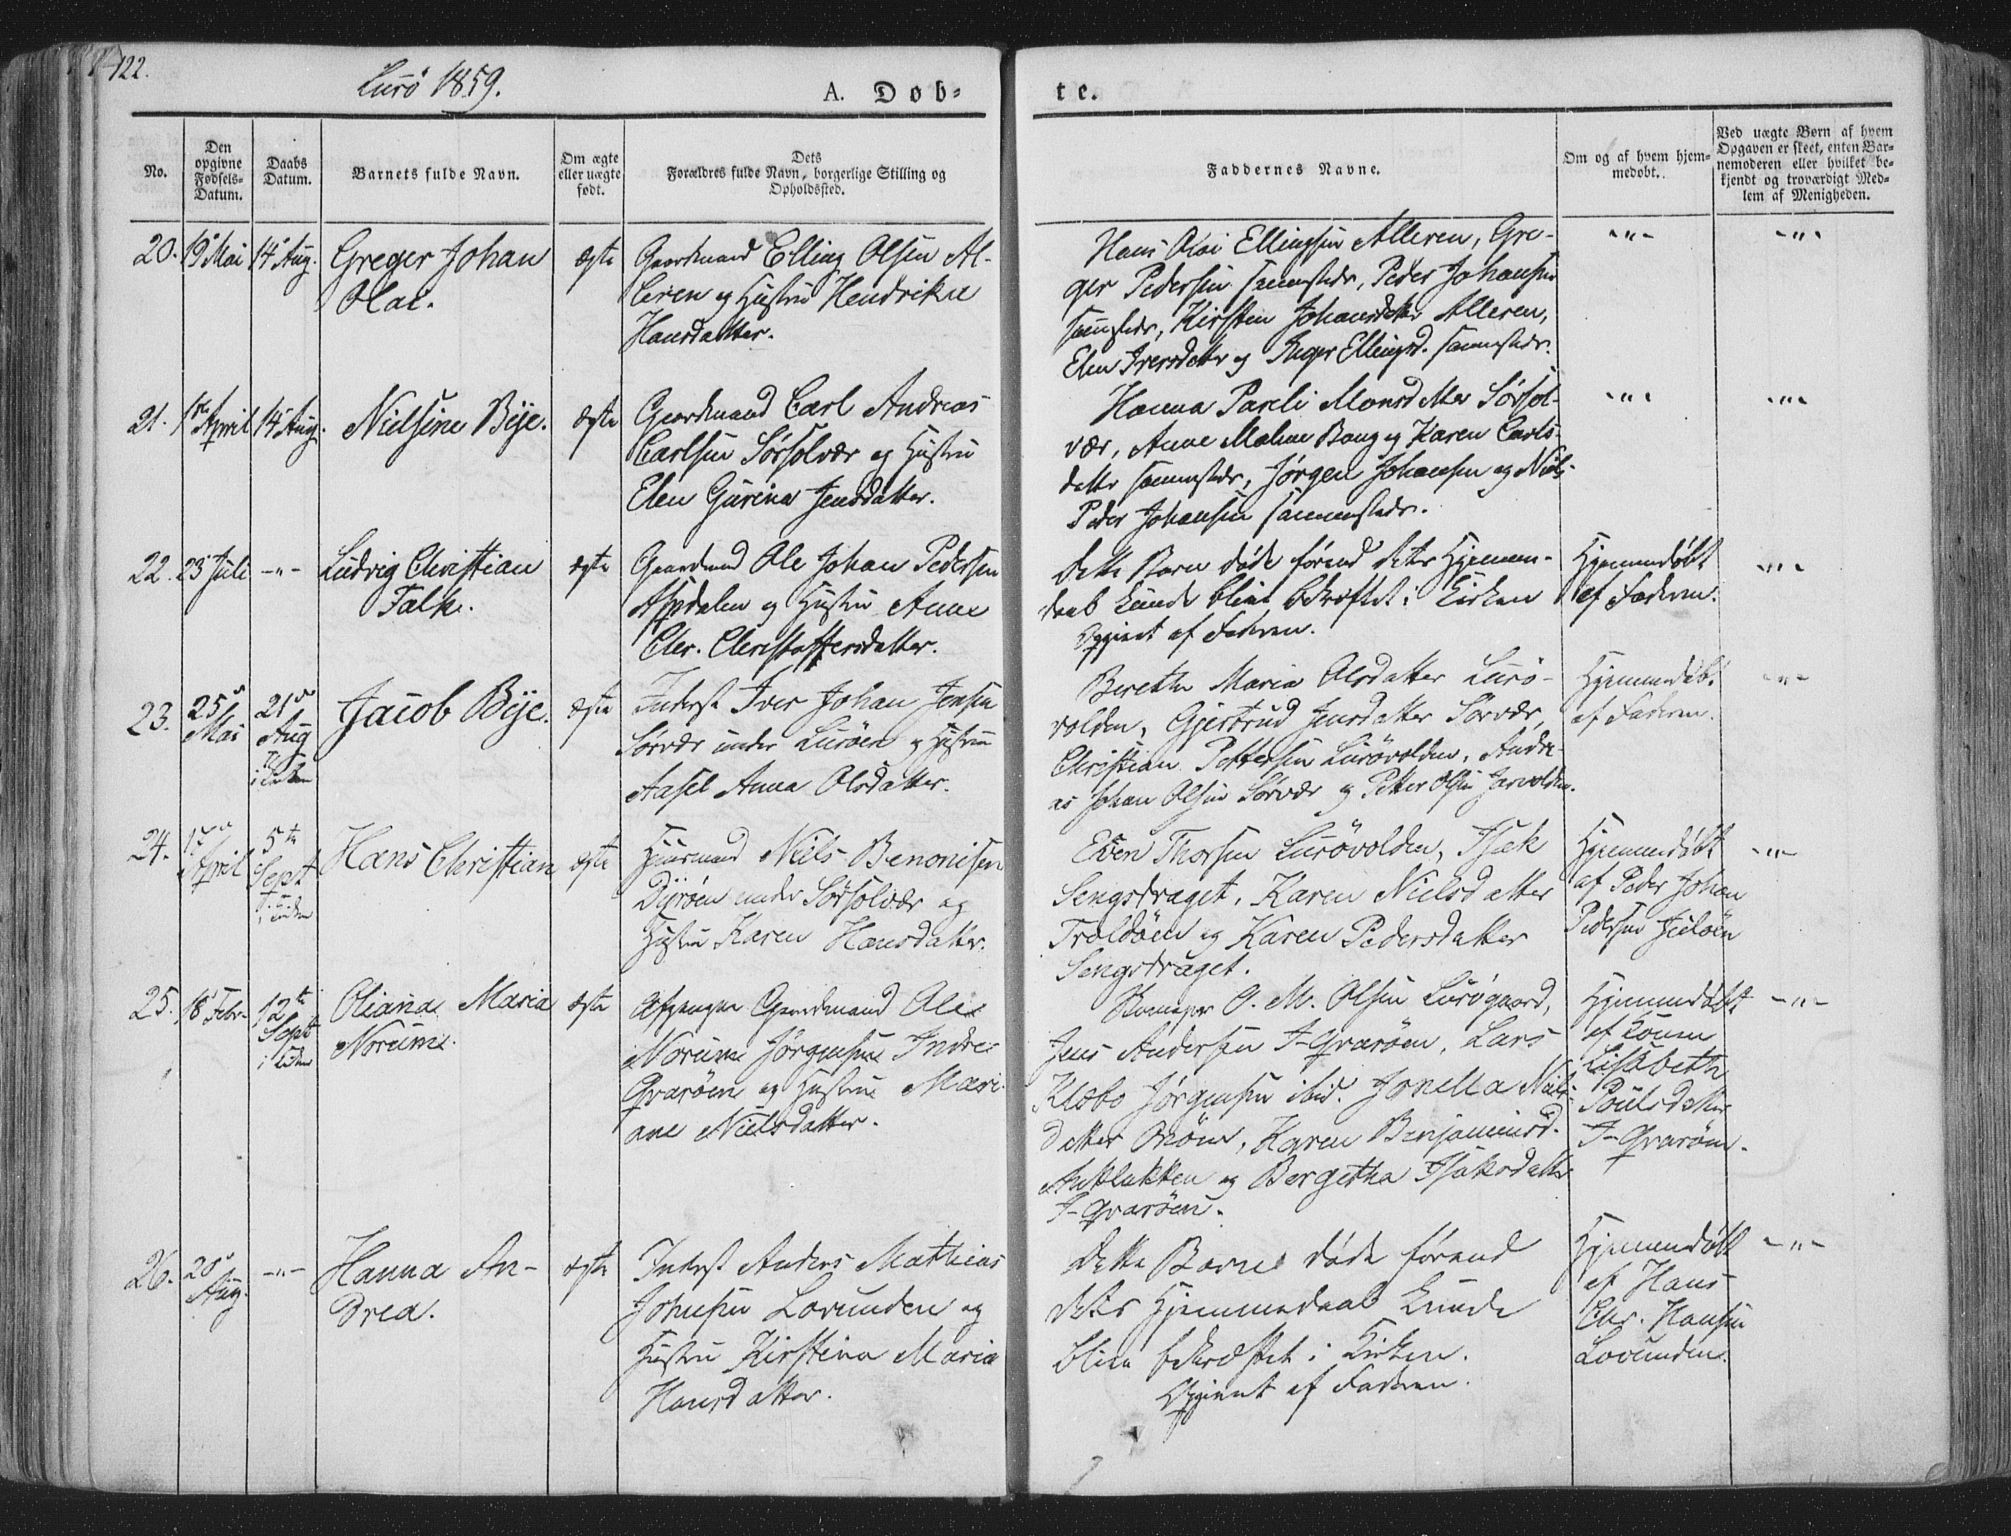 122.
Lurö 1859.
A. Döb-
te.
No.
Den opgivne Fødsels-Datum.
Daabs Datum.
Barnets fulde Navn.
Om ægte eller uægte født.
Dets Forældres fulde Navn, borgerlige Stilling og Opholdssted.
Faddernes Navne.
Om og af hvem hjemmedøbt.
Ved uægte Børn af hvem Opgaven er skeet, enten Barnemoderen eller hvilket bekjendt og troværdigt Medlem af Menigheden.
20. 19 Mai 14 Aug.
Greger Johan
Olai.
ægte
Gaardmand Elling Olsen Al-
leren og Hustru Hendrikke
Hansdatter.
Hans Olai Ellingsen Alleren, Gre-
ger Pedersen sammesteds, Peder Johansen
sammesteds, Kirsten Johansdatter Alleren,
Elen Iversdatter og Inger Ellingsd. sammesteds.
-"- -"-
21. 1ste April 14 Aug.
Nielsine Bye.
ægte
Gaardmand Carl Andreas
Carlsen Sørsolvær og Hustru
Elen Gurina Jensdatter.
Hanna Pareli Monsdatter Sørsol-
vær, Anne Malene Bang og Karen Carls-
datter sammesteds, Jørgen Johansen og Niels
Peder Johansen sammesteds.
-"- -"-
22. 23 Juli -"-
Ludvig Christian
Falk.
ægte
Gaardmand Ole Johan Pedersen
Aspdalen og Hustru Anne
Chr. Christoffersdatter.
Dette Barn døde førend dets Hjemme-
daab kunde blive bekræftet i Kirken
Opgivet af Faderen.
Hjemmedøbt
af Faderen.
-"-
23. 25 Mai 21 Aug i Kirken
Jacob Bye.
ægte
Inderst Iver Johan Jensen
Sørvær under Lurøen og Hustru
Aasel Anna Olsdatter.
Berethe Maria Olsdatter Lurö-
volden, Gjertrud Jensdatter Sørvær,
Christian Pettersen Lurövolden, Andre-
as Johan Olsen Sørvær og Petter Olsen
Hjemmedøbt
af Faderen.
-"-
24. 1ste April 5te Sept i Kirken
Hans Christian
ægte
Huusmand Niels Benonisen
Dyrøen under Sørsolvær og
Hustru Karen Hansdatter.
Even Thorsen Lurövolden, Isak
Sengsdraget, Karen Nielsdatter
Troldöen og Karen Pedersdatter
Sengsdraget.
Hjemmedøbt
af Peder Johan
Pedersen
-"-
25. 18 Febr. 12te Sept i Kirken
Oliana Maria
Norum.
ægte
Afgangen Gaardmand Ole
Norum Jørgensen Indre
Qvaröen og Hustru Mari-
ane Nielsdatter.
O. M. Olsen Lurögaard,
Jens Andersen I-Qvaröen, Lars
Klæbo Jørgensen ibid. Jonella Niels-
datter Karen Benjaminsd.
og Bergetha Isaksdatter
I-Qvaröen.
Hjemmedøbt
af Konen
Lisabeth
Poulsdatter
I-Qvaröen.
-"-
26. 20 Aug. -"-
Hanna An-
drea.
ægte
Inderst Anders Mathias
Johnsen Lovunden og
Hustru Kirstina Maria
Hansdatter.
Dette Barn døde førend
dets Hjemmedaab kunde
blive bekræftet i Kirken.
Opgivet af Faderen.
Hjemmedøbt
af Hans
Chr. Hansen
Lovunden.
-"-